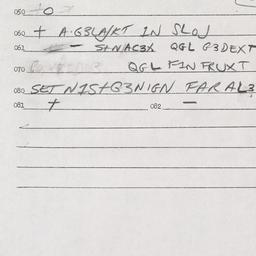 050 + 0
060 + A·G3LA/KT IN SLOJ
061 - S+N/AC3X QGL G3DEXT
070 QGL FIN FRUXT
080 SET N1S+G3NIGN FAR AL3
081 + 082 -